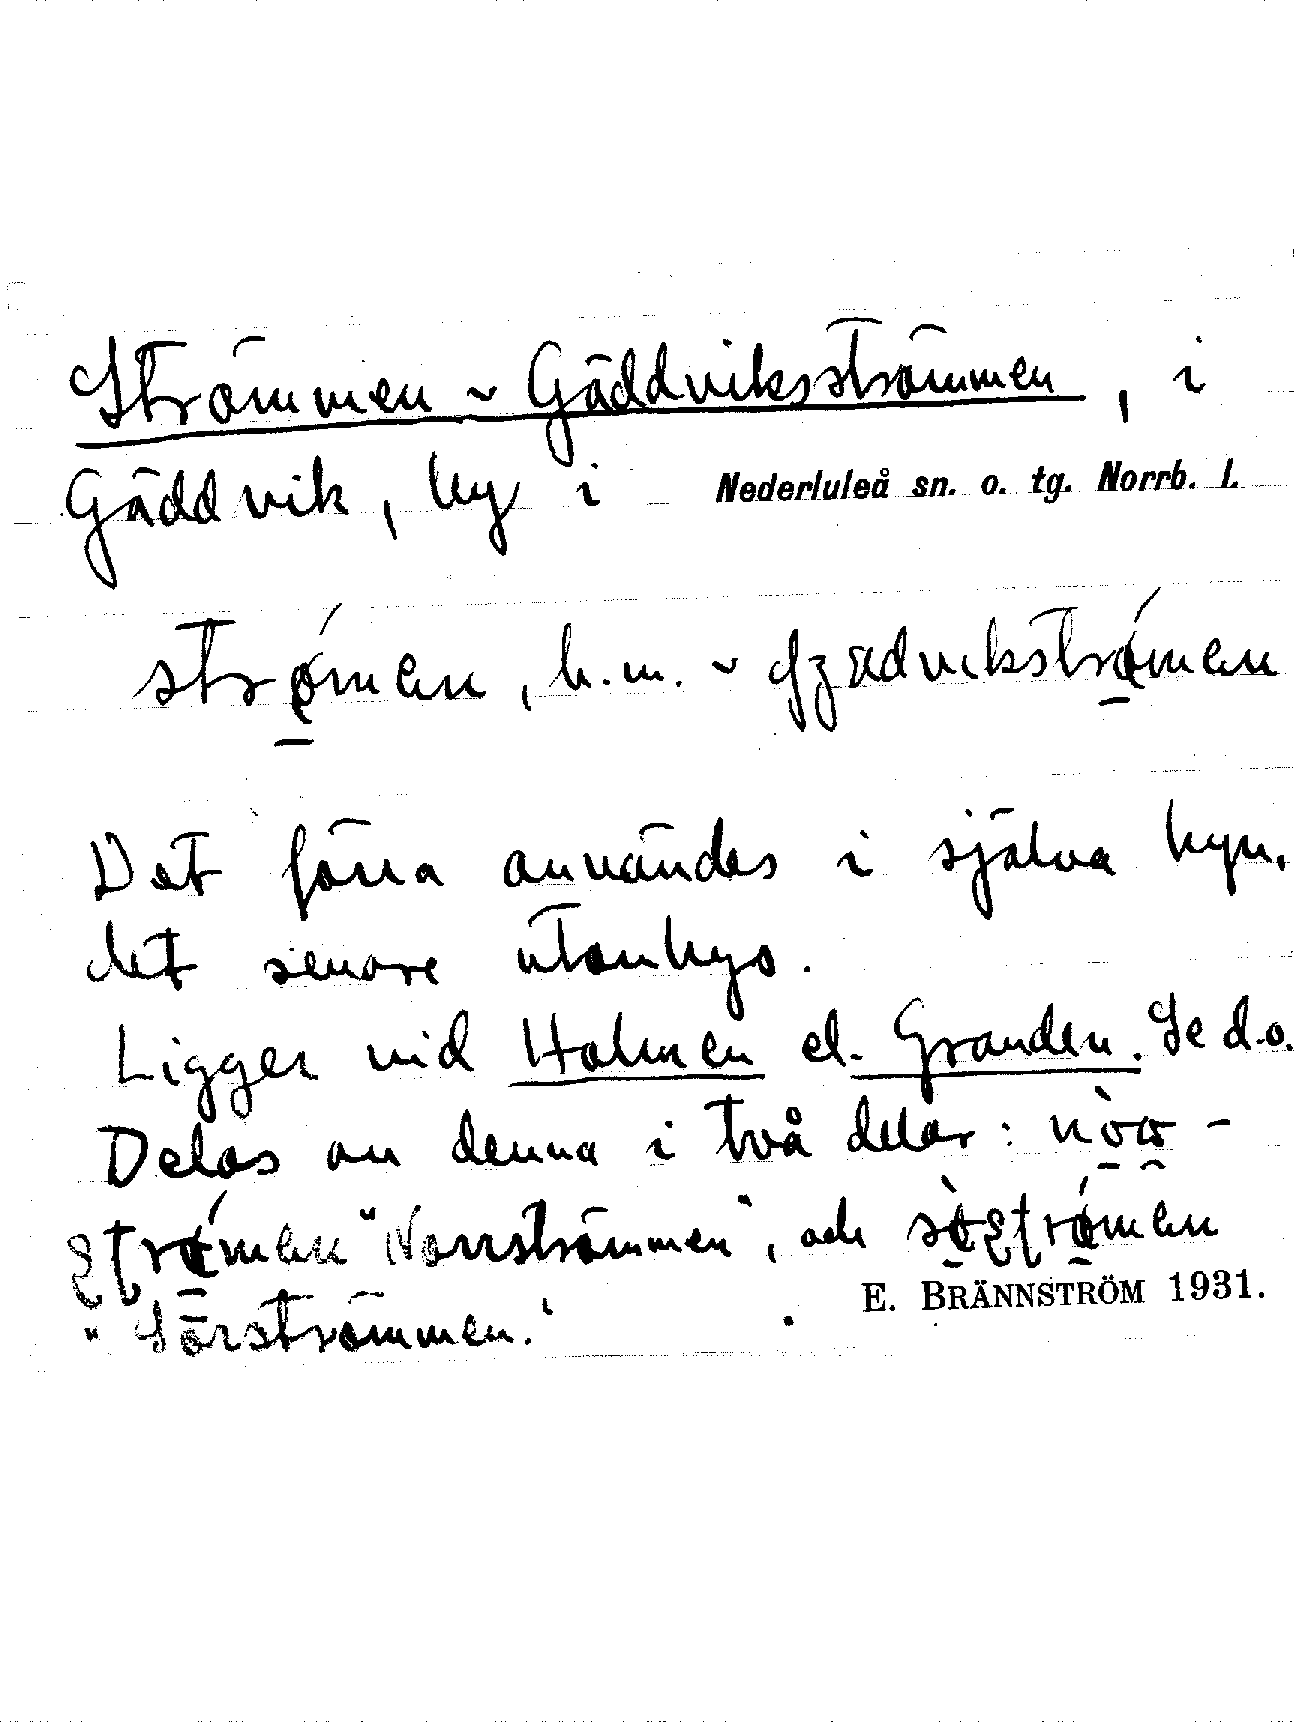 Strömmen ~ Gäddviksströmmen, i
Gäddvik, by i Nederluleå sn. o. tg. Norrb. l.
b.m. ~
Det förra användes i själva byn,
det senare utanbys.
Ligger vid Holmen el. Granden. Se d.o.
Delas av denna i två delar:
"Norrströmmen", och
"Sörströmmen."
E. BRÄNNSTRÖM 1931.